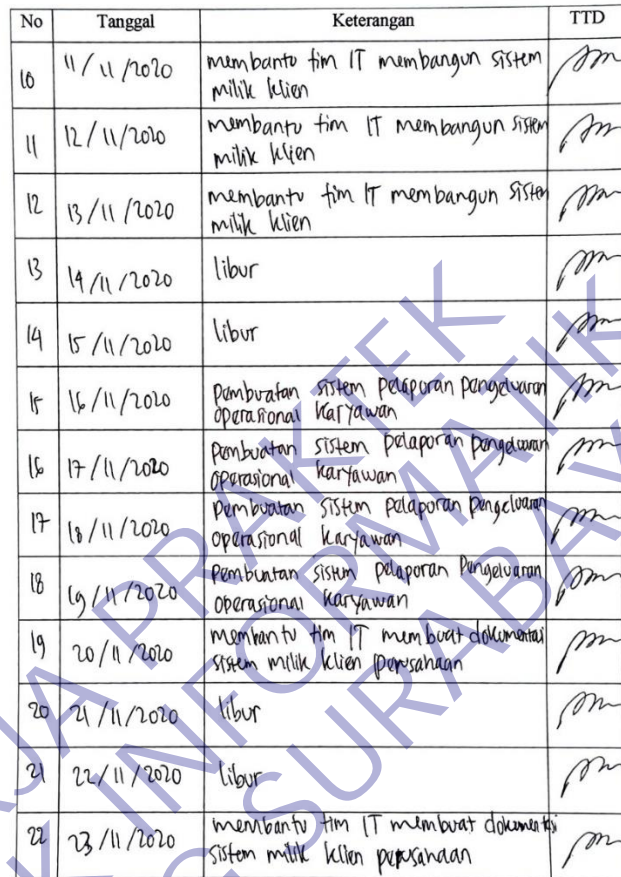 No Tanggal Keterangan TTD
10 11/11/2020 membantu tim IT membangun sistem
milik klien
11 12/11/2020 membantu tim IT membangun sistem
milik klien
12 13/11/2020 membantu tim IT membangun sistem
milik klien
13 14/11/2020 libur
14 15/11/2020 libur
15 16/11/2020 Pembuatan sistem pelaporan pengeluaran
operasional karyawan
16 17/11/2020 Pembuatan sistem pelaporan pengeluaran
operasional karyawan
17 18/11/2020 Pembuatan sistem pelaporan pengeluaran
operasional karyawan
18 19/11/2020 Pembuatan sistem pelaporan Pengeluaran
operasional karyawan
19 20/11/2020 membantu tim IT membuat dokumentasi
sistem milik klien perusahaan
20 21/11/2020 libur
21 22/11/2020 libur
22 23/11/2020 membantu tim IT membuat dokumentasi
sistem milik klien perusahaan
RJA PRAKTEK
K INFORMATIK
G SURABAY